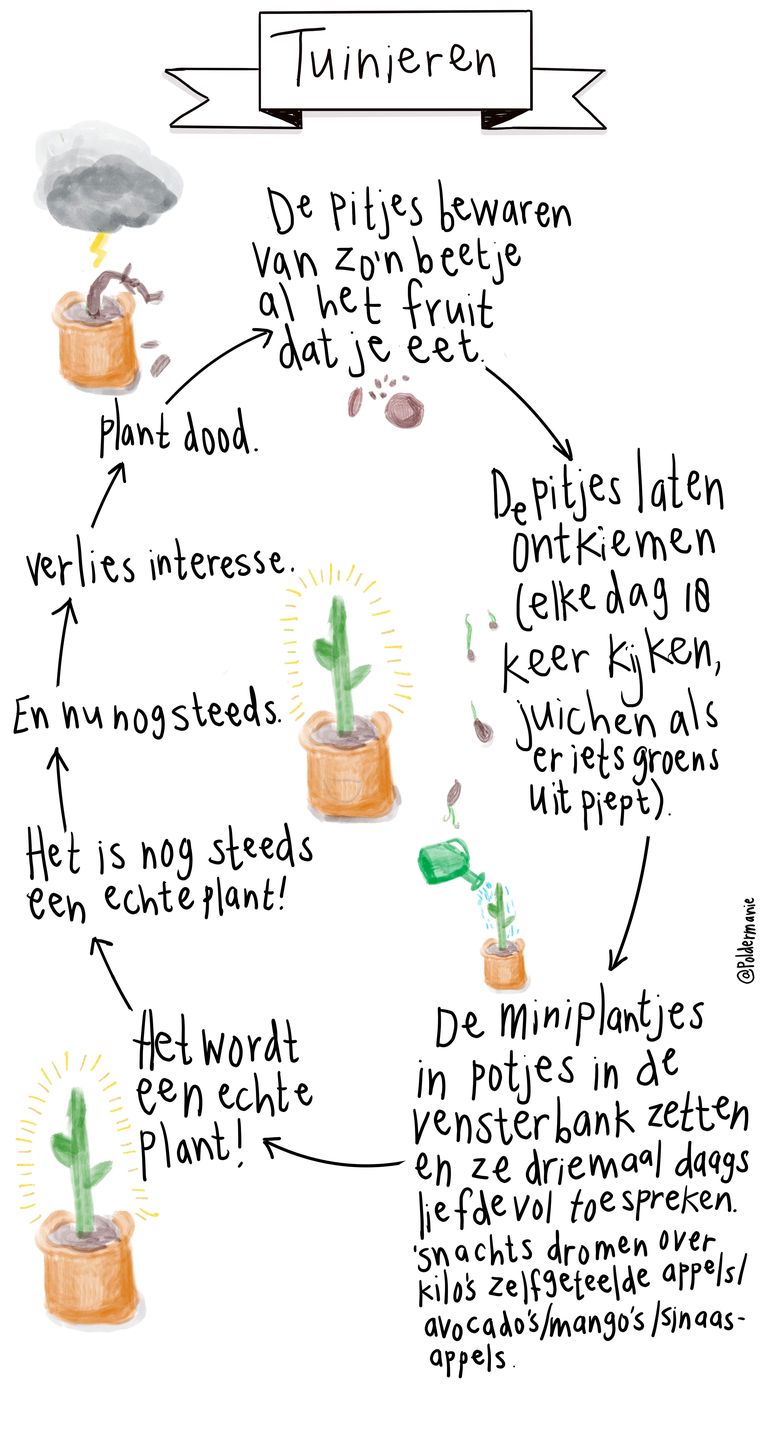 Tuinieren
De pitjes bewaren
van zo'n beetje
al het fruit
dat je eet.
De pitjes laten
ontkiemen
(elke dag 18
keer kijken,
juichen als
er iets groens
uit piept).
De miniplantjes
in potjes in de
vensterbank zetten
en ze driemaal daags
liefdevol toespreken.
'snachts dromen over
kilo's zelfgeteelde appels/
avocado's/mango's/sinaas-
appels.
Het wordt
een echte
plant!
Het is nog steeds
een echte plant!
En nu nog steeds.
Verlies interesse.
Plant dood.
@Poldermanie